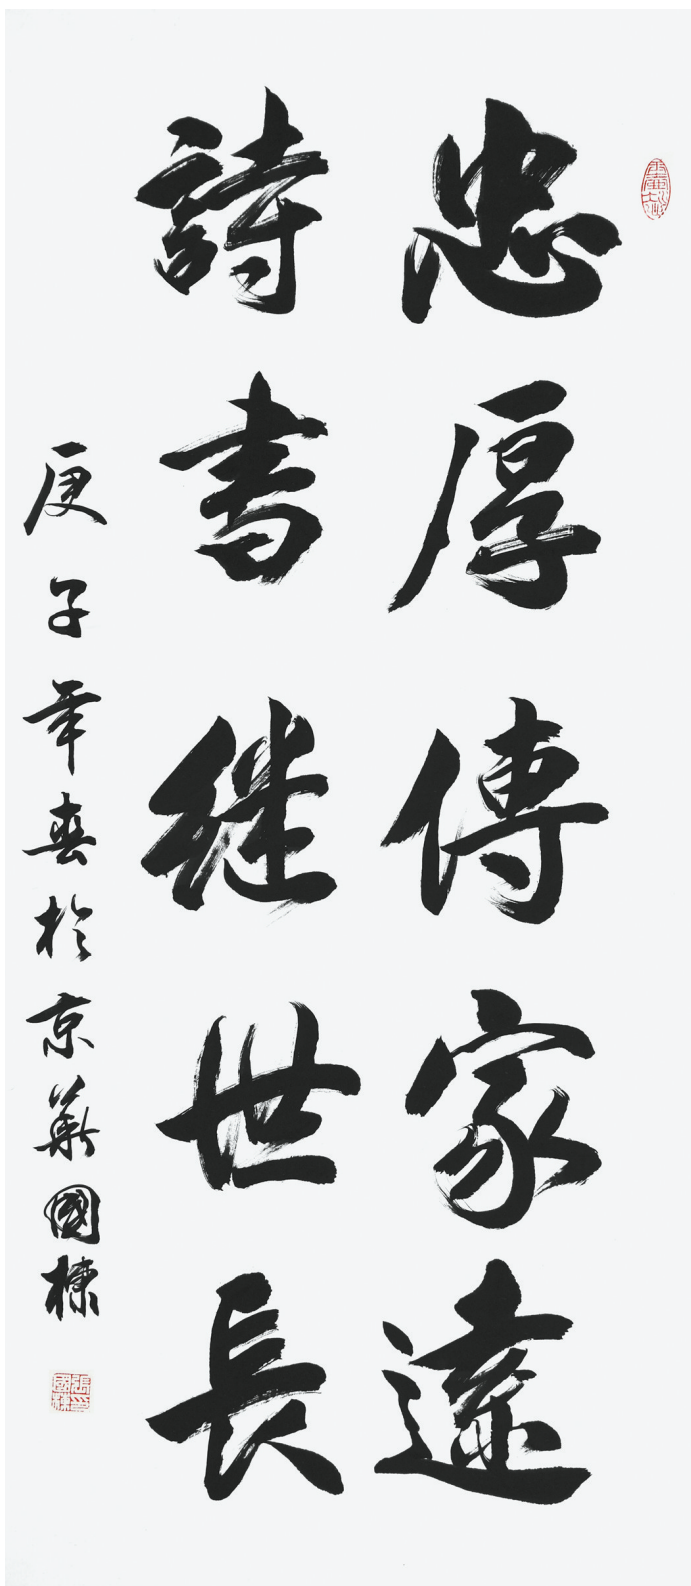 忠厚傳家遠
詩書继世長
庚子年春於京華國棟